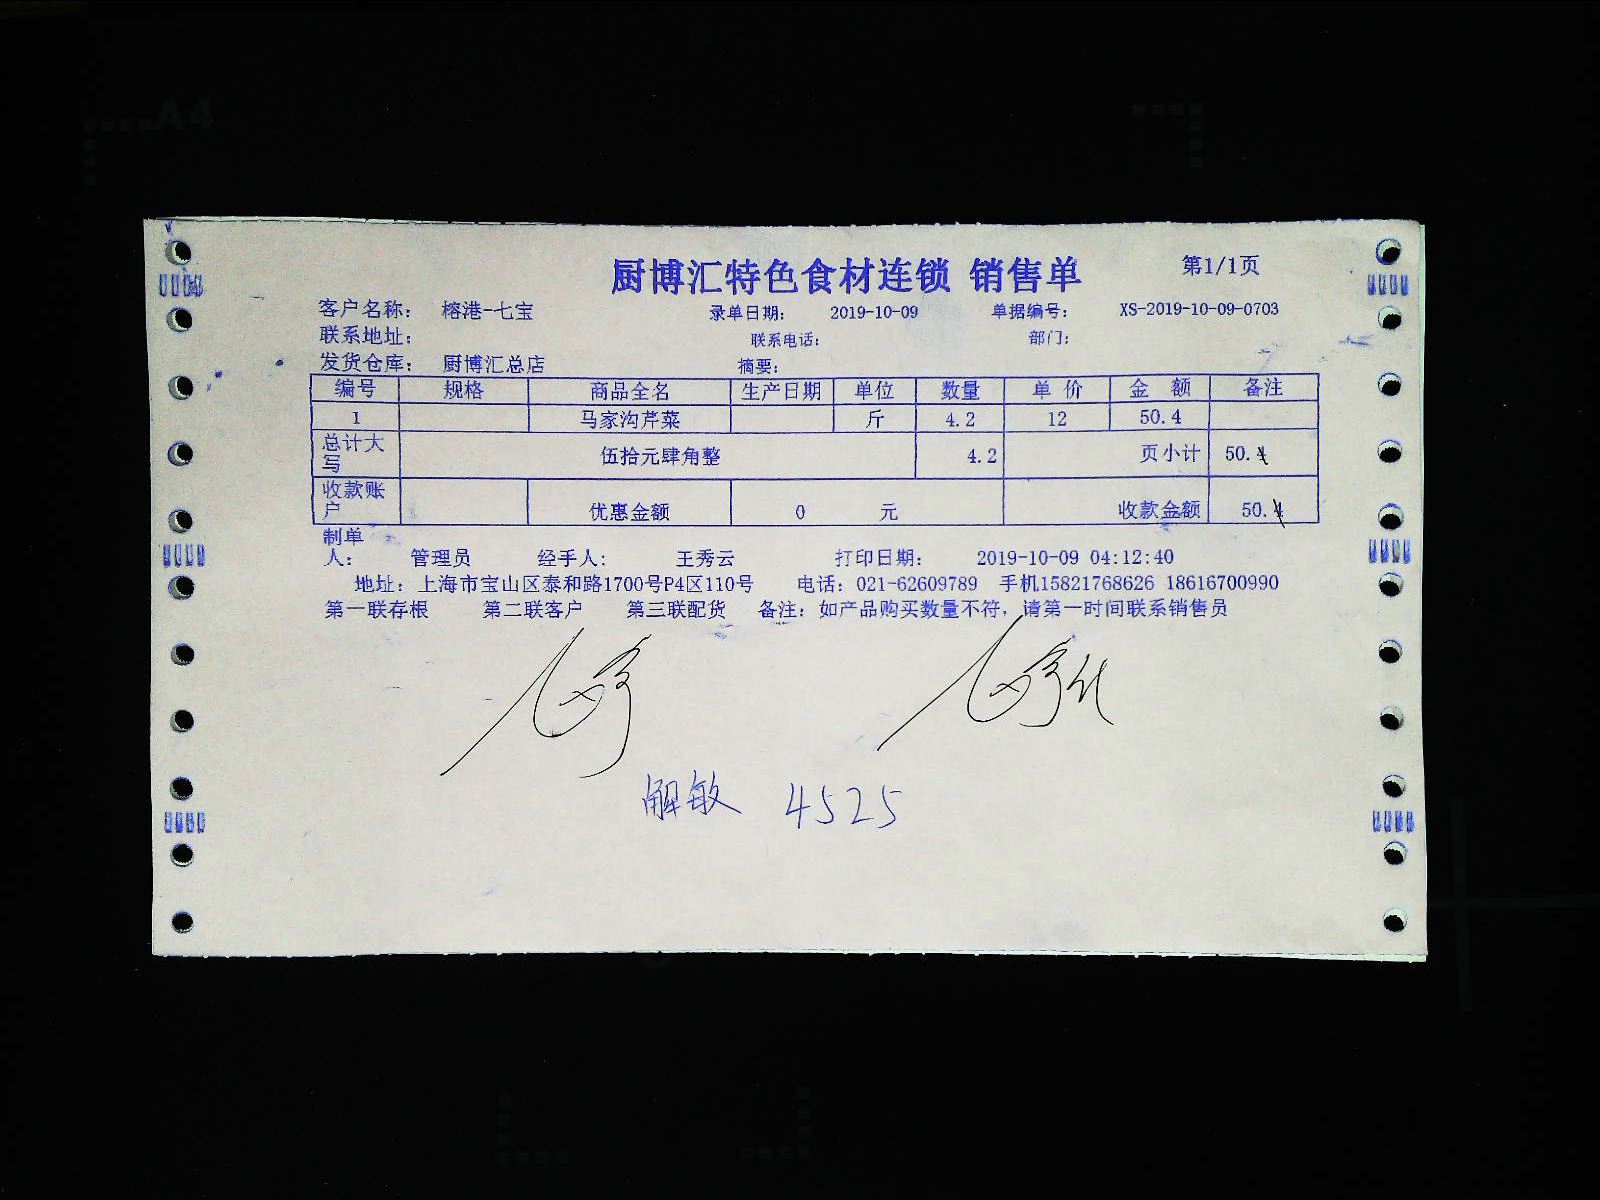 厨博汇特色食材连锁 销售单 第1/1页
客户名称： 榕港-七宝 录单日期： 2019-10-09 单据编号： XS-2019-10-09-0703
联系地址： 联系电话： 部门：
发货仓库： 厨博汇总店 摘要：
编号 规格 商品全名 生产日期 单位 数量 单 价 金 额 备注
1 马家沟芹菜 斤 4.2 12 50.4
总计大写 伍拾元肆角整 4.2 页小计 50.4
收款账户 优惠金额 0 元 收款金额 50.4
制单人： 管理员 经手人： 王秀云 打印日期： 2019-10-09 04:12:40
地址：上海市宝山区泰和路1700号P4区110号 电话：021-62609789 手机15821768626 18616700990
第一联存根 第二联客户 第三联配货 备注：如产品购买数量不符，请第一时间联系销售员
解敏 4525